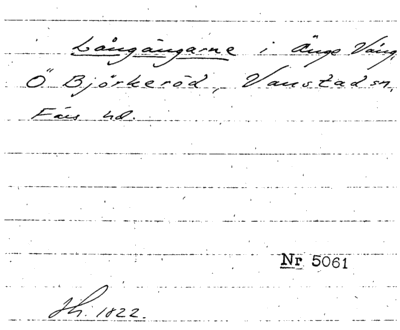 Långängarne i Änge Vång,
Ö Björkeröd, Vanstads sn,
Färs hd.
Nr 5061
Hh. 1822.